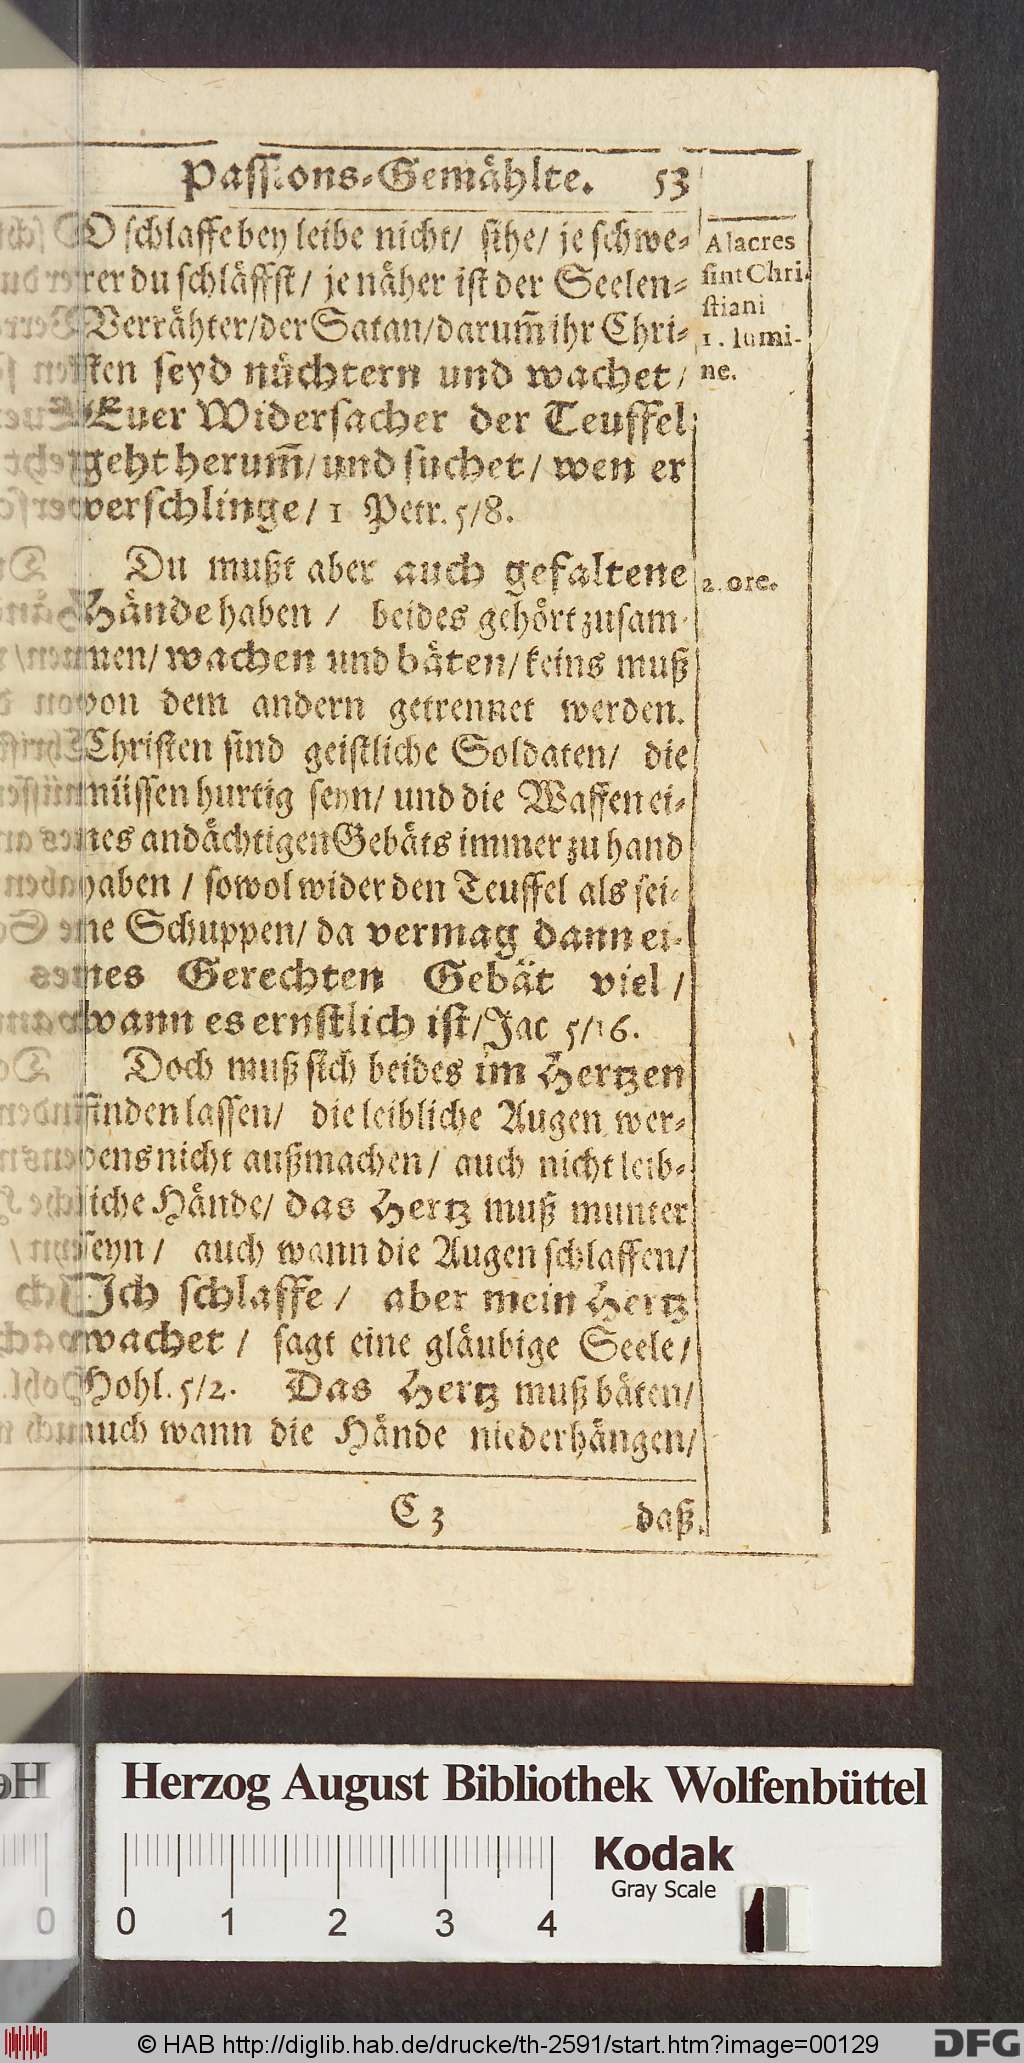 Passions-Gemählte. 53
O schlaffe bey leibe nicht/ sihe/ je schwe-
rer du schläffst/ je näher ist der Seelen-
Verrähter/der Satan/darum̃ ihr Chri-
sten seyd nüchtern und wachet/
Euer Widersacher der Teuffel
geht herum̃/und suchet/ wen er
verschlinge/ 1 Petr. 5/8.
Du mußt aber auch gefaltene
Hände haben / beides gehört zusam-
men/ wachen und bäten/ keins muß
von dem andern getrennet werden.
Christen sind geistliche Soldaten/ die
müssen hurtig seyn/ und die Waffen ei-
nes andächtigen Gebäts immer zu hand
haben / sowol wider den Teuffel als sei-
ne Schuppen/ da vermag dann ei-
nes Gerechten Gebät viel /
wann es ernstlich ist/Jac 5/16.
Doch muß sich beides im Hertzen
finden lassen/ die leibliche Augen wer-
dens nicht außmachen/ auch nicht leib-
liche Hände/ das Hertz muß munter
seyn / auch wann die Augen schlaffen/
Ich schlaffe / aber mein Hertz
wachet / sagt eine gläubige Seele/
Hohl. 5/2. Das Hertz muß bäten/
auch wann die Hände niederhängen/
C 3 daß
Alacres
sint Chri-
stiani
1. lumi-
ne.
2. ore.
Herzog August Bibliothek Wolfenbüttel
Kodak
Gray Scale
0 0 1 2 3 4
© HAB http://diglib.hab.de/drucke/th-2591/start.htm?image=00129
DFG